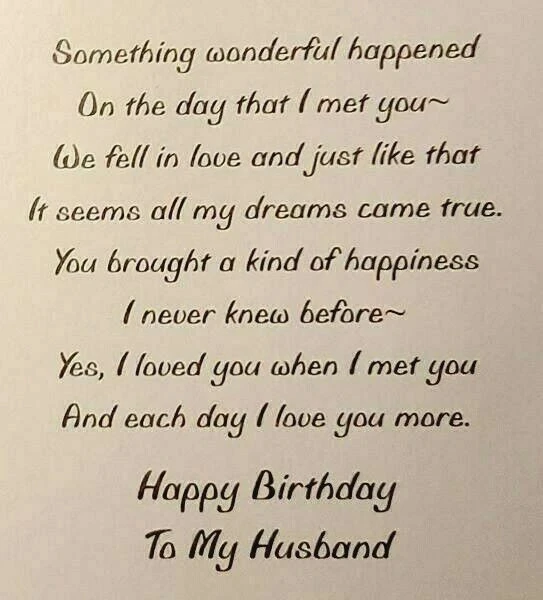 Something wonderful happened
On the day that I met you~
We fell in love and just like that
It seems all my dreams came true.
You brought a kind of happiness
I never knew before~
Yes, I loved you when I met you
And each day I love you more.
Happy Birthday
To My Husband